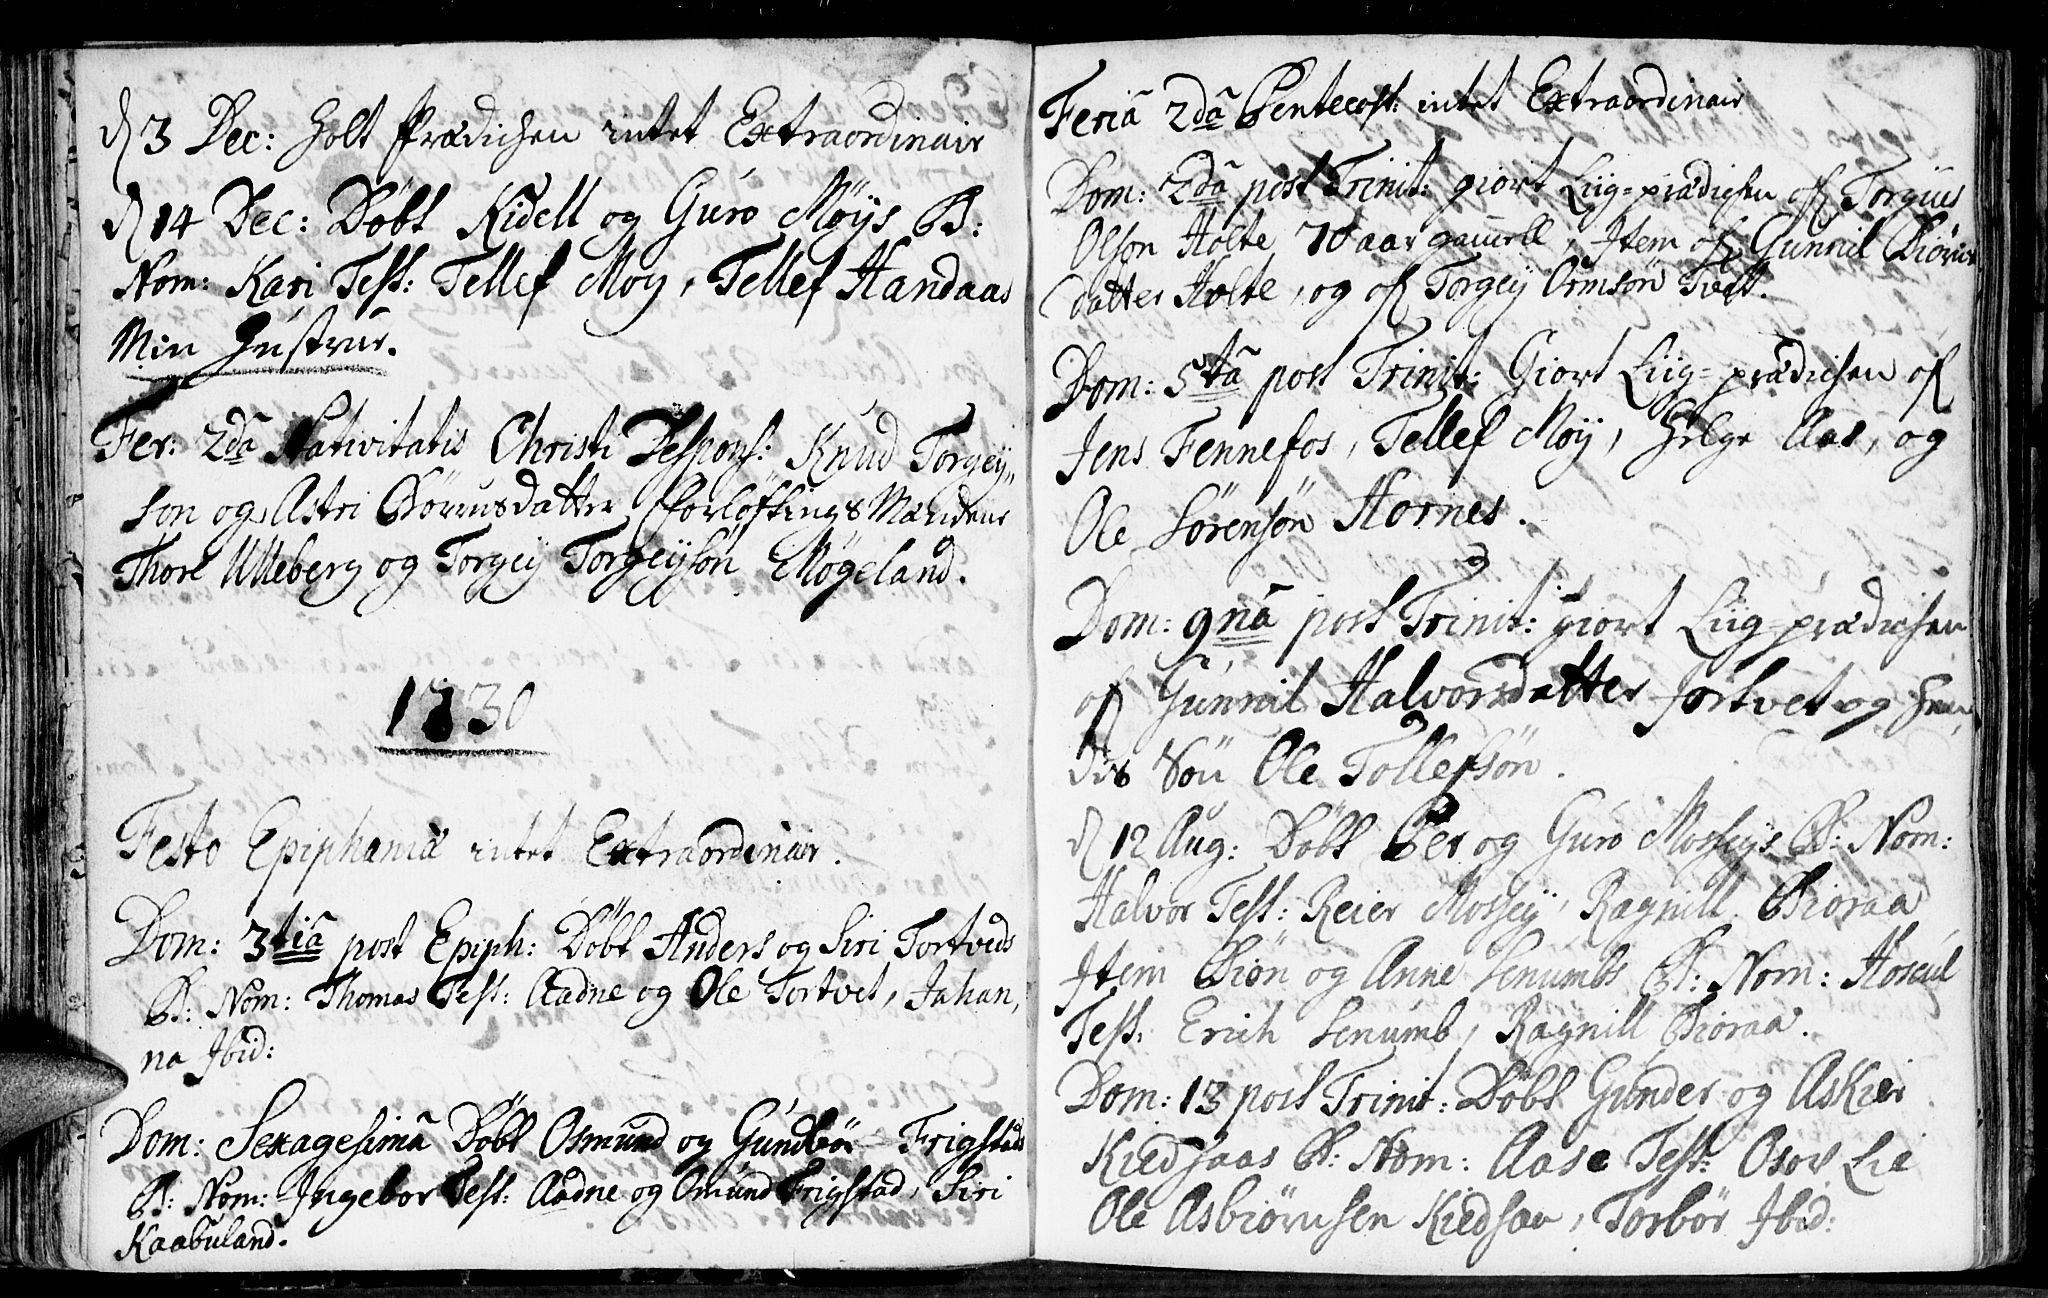 d 3 Dec: holt Prædichen intet Extraordinair
d 14 Dec: Döbt Kidell og Guro Möys B:
Nom: Kari Test: Tellef Moy, Tellef Handaas
Min Hustrue.
Fer: 2dã Nativitatis Christi Despons: Knud Torgey,,
son og Astri Börrusdatter, Forlofnings Mændene
Thore Ulleberg og Torgey Torgeysön Mögeland.
1730
Festo Epiphaniæ intet Extraordinair.
Dom: 3tiã post Epiph: Döbt Anders og Siri Tortveds
B: Nom: Thomas Test: Aadne og Ole Tortvet, Johan,
na Ibid:
Dom: Sexagesimã Döbt Osmund og Gundbör Frigstads
B: Nom: Ingebor Test: Aadne og Omund Frigstad, Siri
Kaabuland.
Feriã 2dã Pentecost: intet Extraordinair
Dom: 2dã post Trinit: giort Liig-prædichen of Torgius
Olson Holte 70 aar gammell, Item of Gunnil Biörns
datter Holte, og of Torgey Ormsön Tvet.
Dom: 5tã post Trinit: Giort Liig-prædichen of
Jens Fennefos, Tellef Moy, Helge Aas, og
Ole Sörensön Hornes.
Dom: 9nã post Trinit: giort Liig-prædichen
of Gunnil Halvorsdatter Jortvet og hen,
des Sön Ole Tollefsön.
d 12 Aug: Döbt Per og Guro Mosseys B: Nom:
Halvor Test: Reier Mossey, Ragnill Bioraa
Item Biön og Anne Senumbs B: Nom: Hoscul
Test: Erich Senumb, Ragnill Bioraa.
Dom: 13 post Trinit: Döbt Gunder og Askier
Kiedsaas B: Nom: Aase Test: Osov Lie
Ole Asbiörnsen Kiedsaa, Torbör Ibid: